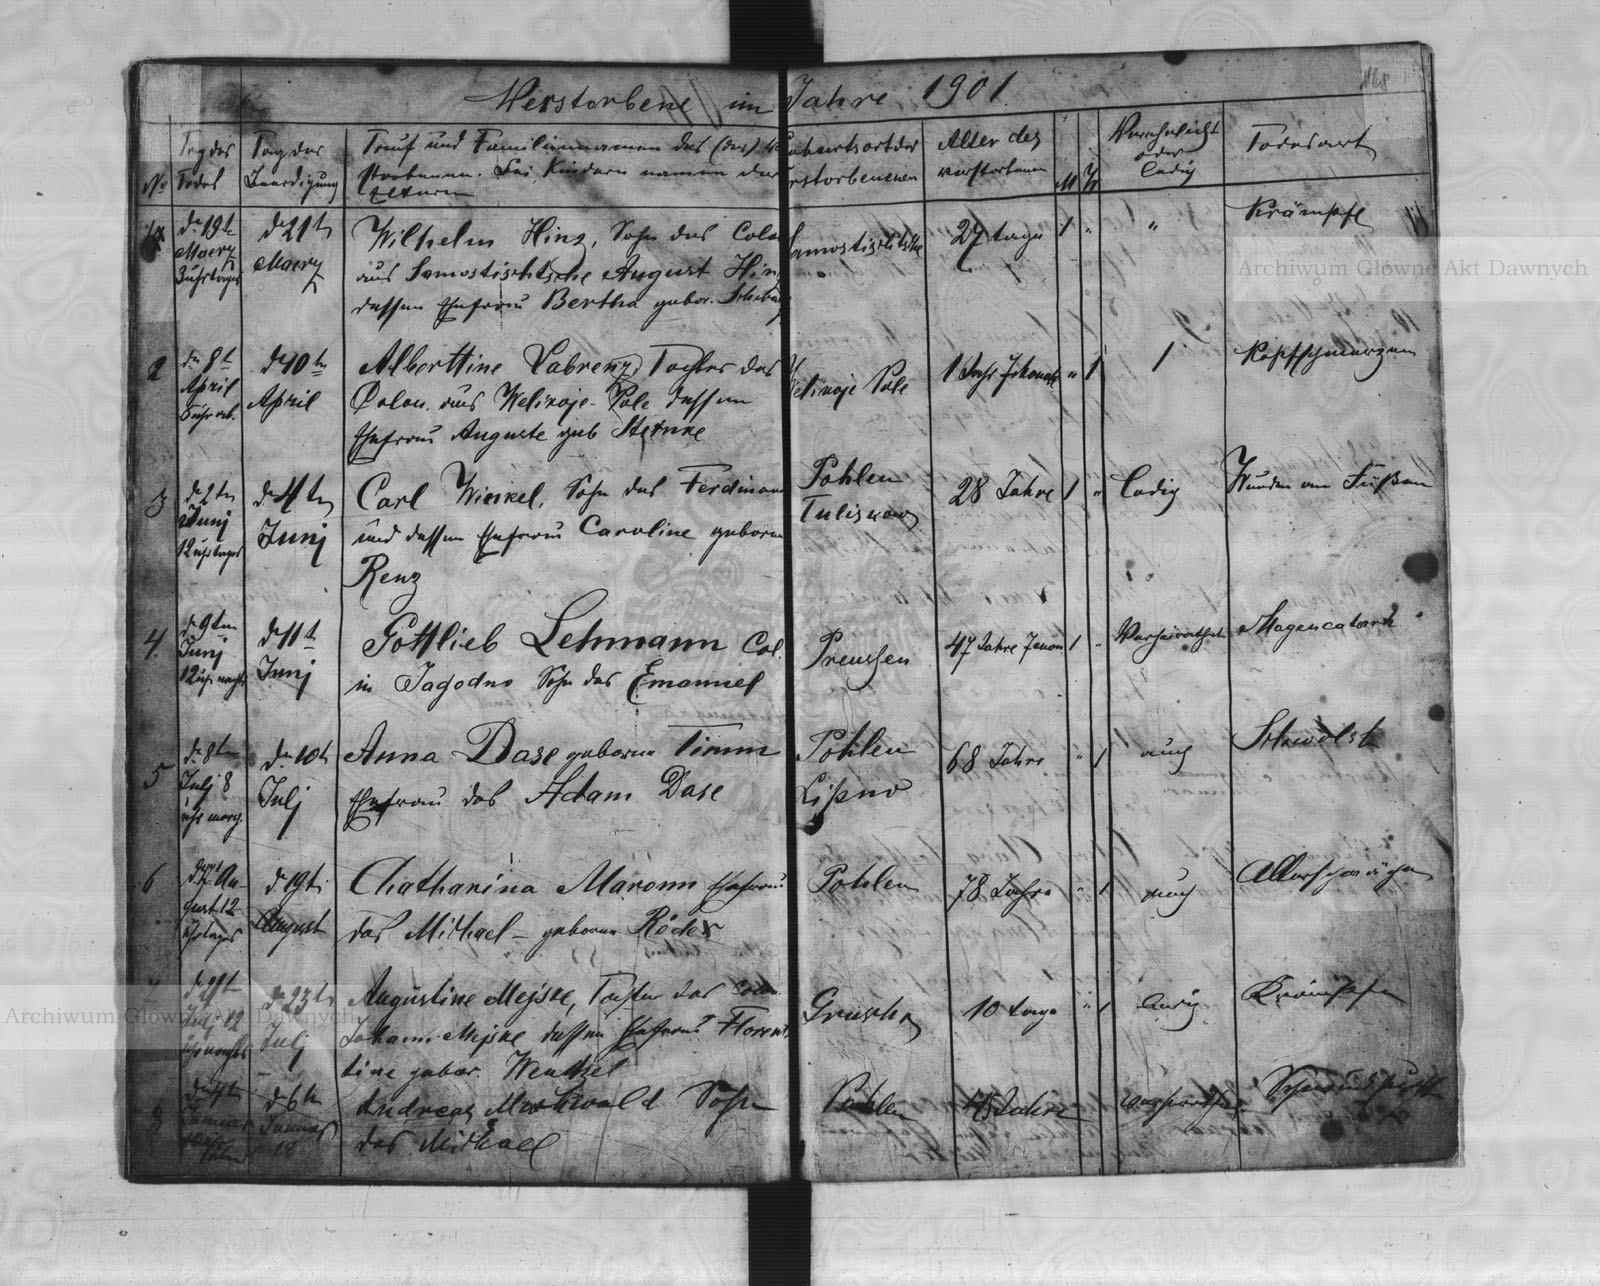 Verstorbene im Jahre 1901.
168
No
Tag des Todes
Tag der Beerdigung
Tauf und Familiennamen des (der) Ver-
storbenen. Bei Kindern namen der
Eltern
Geburtsort der
Verstorbenenen
Alter des
verstorbenen
M
W
Verehelicht
oder
Ledig
Todesart
1
den 19t Maerz
den 21t Maerz
Wilhelm Hinz, Sohn des Colon
aus Samostischtsche August Hinz
dessen Ehefrau Bertha gebor.
Samostischtsche
27 tage
1
"
"
Krämpfe
2
den 8t April 5 uhr ab.
den 10tn April
Alberttine Labrenz, Tochter des
Colon. aus Welikoje-Pole dessen
Ehefrau Auguste geb Sternke
Welikoje Pole
1 Jahr 7 Monate
"
1
1
Kopfschmerzen
3
den 2tn Junj 12 uhr tages
den 4tn Junj
Carl Winkel, Sohn des Ferdinand
und dessen Ehefrau Caroline geborne
Renz
Pohlen
Tuliskow
28 Jahre
1
"
Ledig
Wunden am Füßen
4.
den 9ten Junj 12 uhr nachts
den 11t Junj
Gottlieb Lehmann Col.
in Jagodno Sohn des Emanuel
Preussen
47 Jahre 7 mon
1
"
Verheirathet
Magencatarh
5
den 8ten Julj 8 uhr morg.
den 10t Julj
Anna Dase geborne Timm
Ehefrau des Adam Dase
Pohlen
Lipno
68 Jahre
"
1
auch
Schwolst
6
den 17t August 12 uhr tages
den 19t August
Chatharina Maronn Ehefrau
des Michael - geborne Röder
Pohlen
78 Jahre
"
1
auch
Altersschwäche
7
den 21t Julj 12 uhr nachts
den 23t Julj
Augustine Mejske, Tochter des Colon.
Johann Mejske dessen Ehefrau Floren-
tine gebor. Wentzel
Gruscha
10 tage
"
1
Ledig
Krämpfen
8
den 4t Januar
den 6tn Januar
Andreas Markwald Sohn
des Michael
Pohlen
Jahre
Schwindsucht
Archiwum Główne Akt Dawnych
Archiwum Główne Akt Dawnych